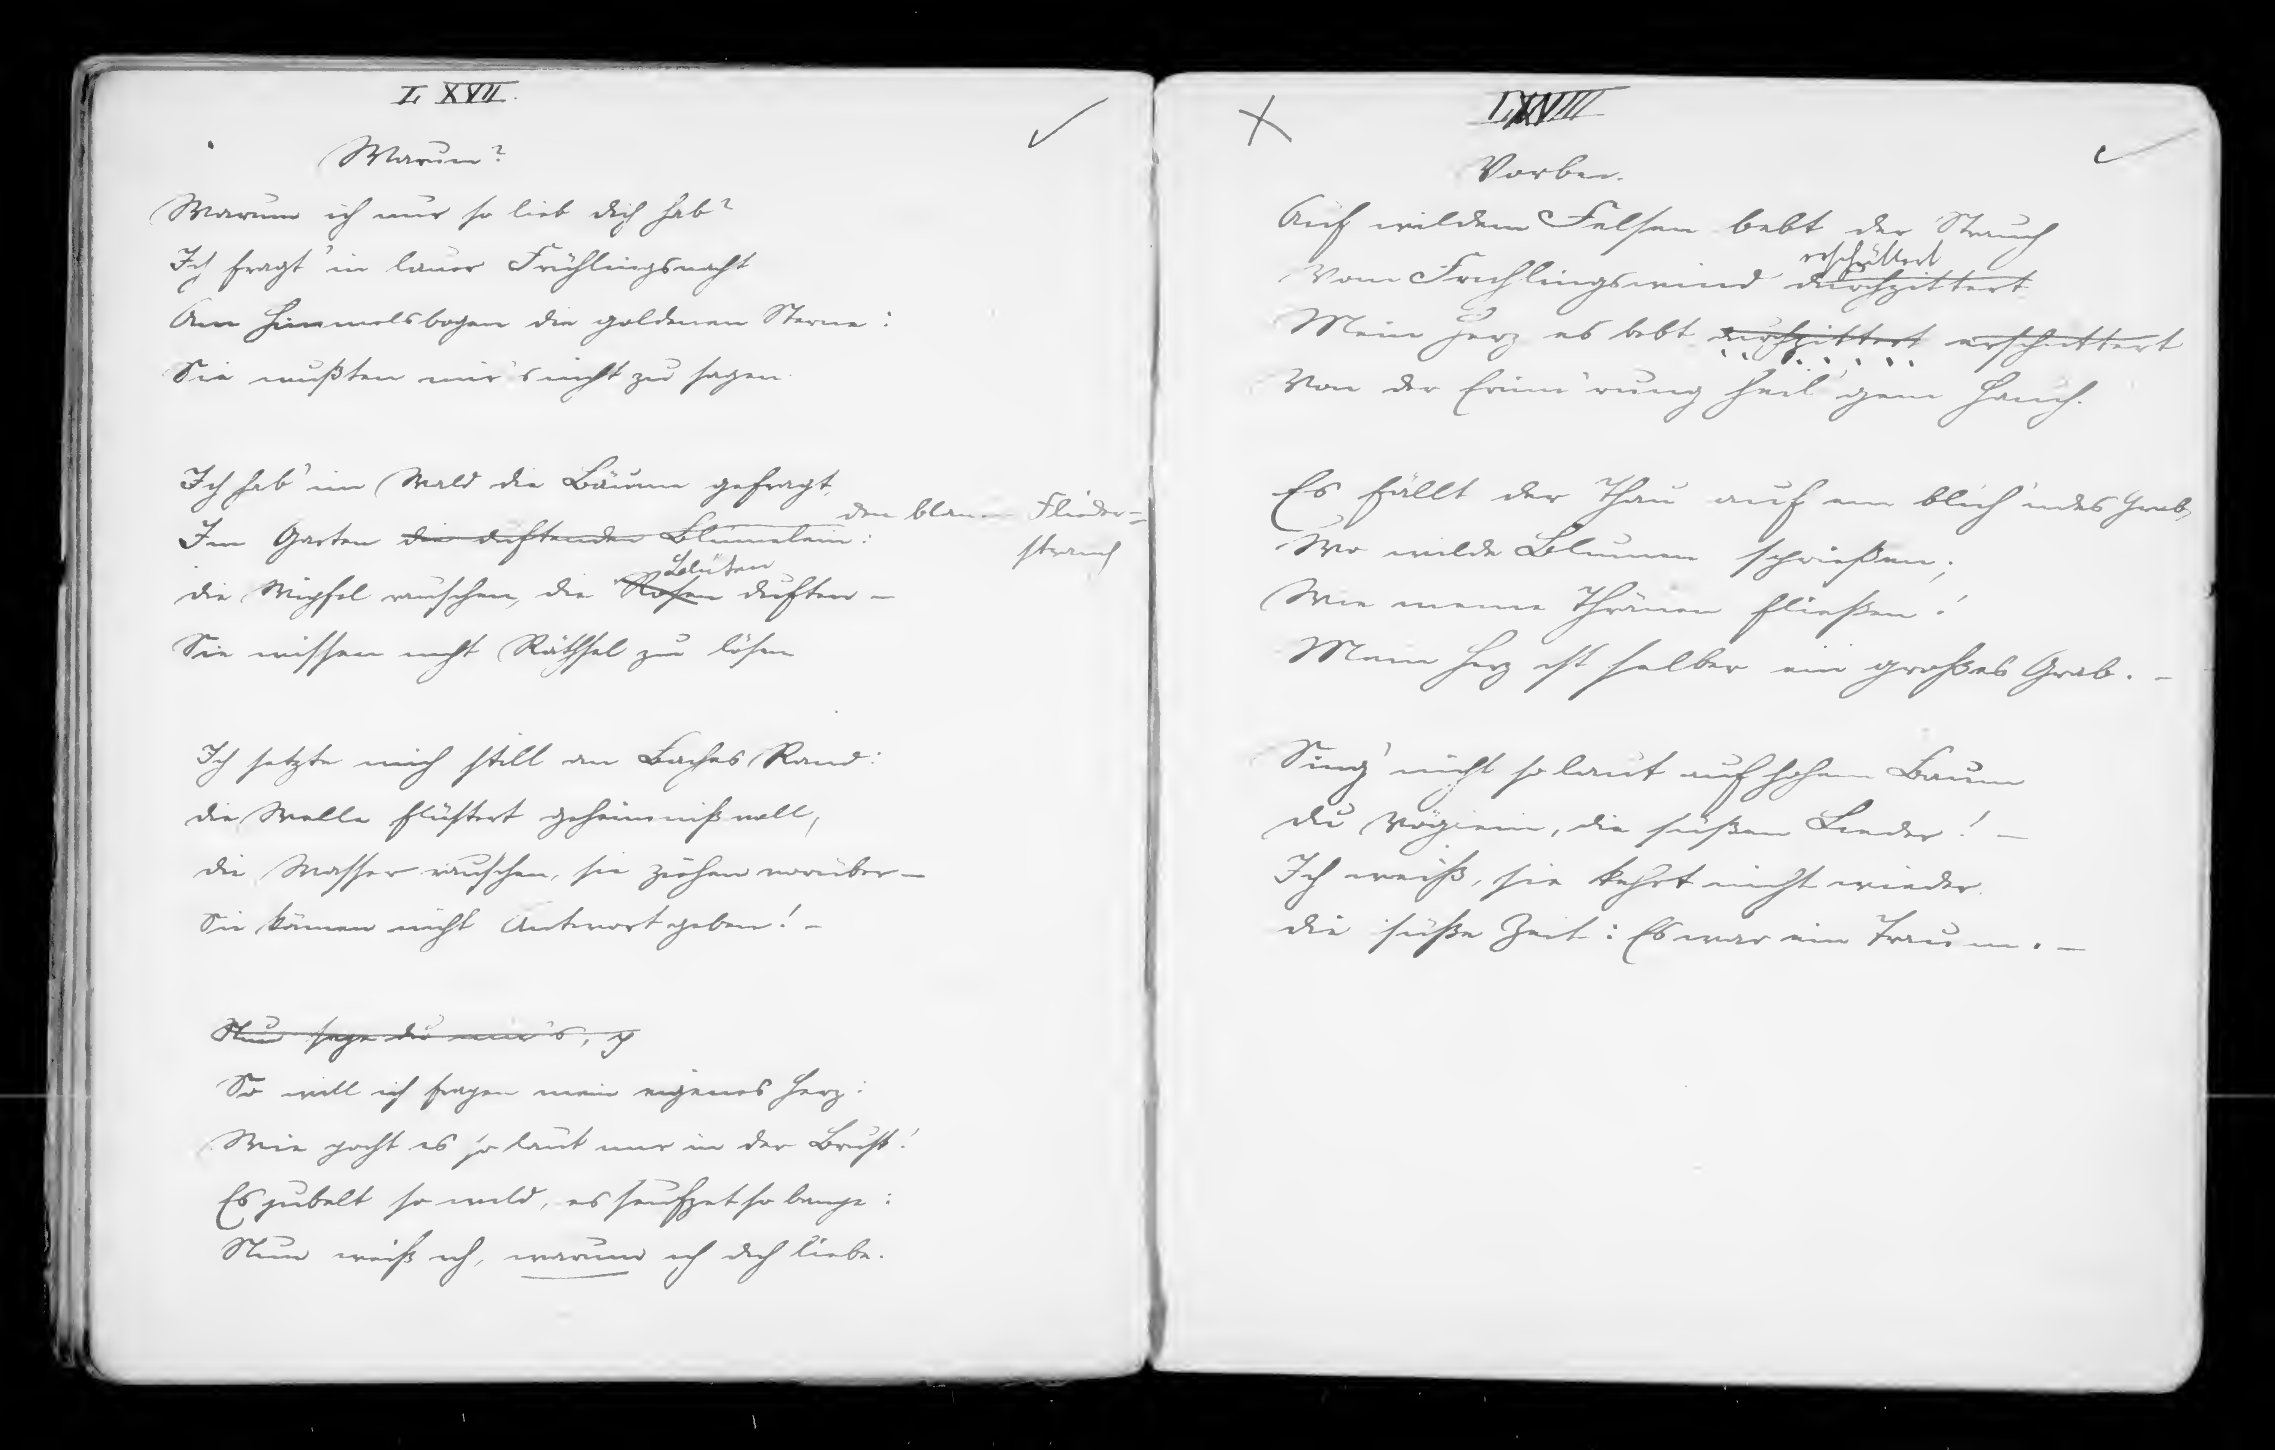 LXVII.
Warum?
Warum ich nur so lieb dich hab?
Ich fragt' in lauer Frühlingsnacht
Am Himmelsbogen die goldenen Sterne:
Sie wußten mir's nicht zu sagen.
Ich hab' im Wald die Bäume gefragt,
den blauen Flieder=
Im Garten die duftenden Blümelein:
strauch
Blüten
die Wipfel rauschen, die Rosen duften –
Sie wissen nicht Räthsel zu lösen
Ich setzte mich still an Baches Rand:
die Welle flüstert geheimnißvoll,
die Wasser rauschen, sie ziehen vorüber –
Sie können nicht Antwort geben! –
Nun sage du mir's,
So will ich fragen mein eigenes Herz:
Wie pocht es so laut mir in der Brust!
Es jubelt so wild, es seufzet so bange:
Nun weiß ich, warum ich dich liebe.
LXVIII
Vorbei.
Auf wildem Felsen bebt der Strauch
erschüttert
Vom Frühlingswind durchzittert
Mein Herz es bebt durchzittert erschüttert
Von der Erinn'rung heil'gem Hauch.
Es fällt der Thau auf ein blüh'ndes Grab,
Wo wilde Blumen sprießen;
Wie meine Thränen fließen!
Mein Herz ist selber ein großes Grab. –
Sing' nicht so laut auf hohem Baum
du Vöglein, die süßen Lieder! –
Ich weiß, sie kehrt nicht wieder
die süße Zeit: Es war ein Traum. –